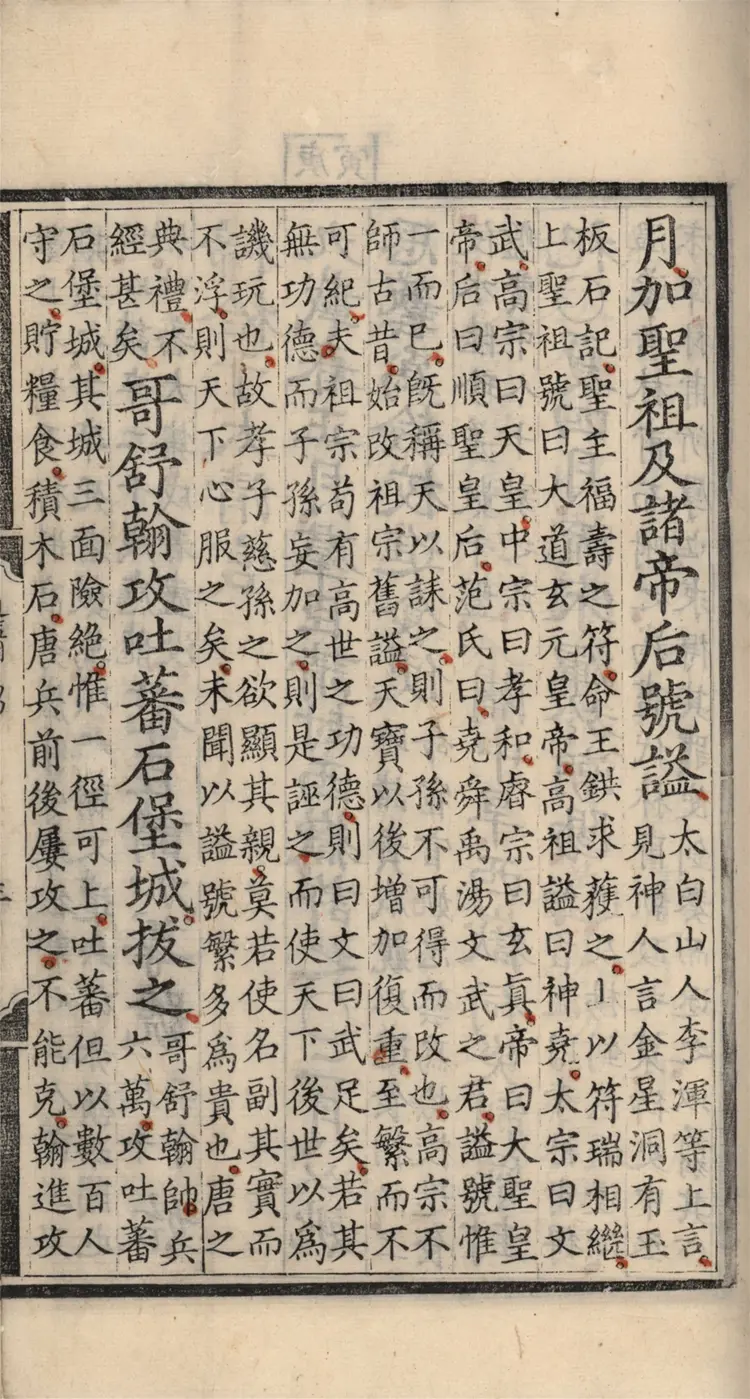 月加聖祖及諸帝后號謚
太白山人李渾等上言
見神人言金星洞有玉
板石記聖主福壽之符命王鉷求獲之丄以符瑞相繼
上聖祖號曰大道玄元皇帝高祖謚曰神堯太宗曰文
武高宗曰天皇中宗曰孝和睿宗曰玄眞帝曰大聖皇
帝后曰順聖皇后范氏曰堯舜禹湯文武之君謚號惟
一而已旣稱天以誄之則子孫不可得而改也高宗不
師古昔始改祖宗舊謚天寶以後增加復重至繁而不
可紀夫祖宗苟有高世之功德則曰文曰武足矣若其
無功德而子孫妄加之則是誣之而使天下後世以爲
譏玩也故孝子慈孫之欲顯其親莫若使名副其實而
不浮則天下心服之矣未聞以謚號繁多爲貴也唐之
典禮不
經甚矣
哥舒翰攻吐蕃石堡城拔之
哥舒翰帥兵
六萬攻吐蕃
石堡城其城三面險絶惟一徑可上吐蕃但以數百人
守之貯糧食積木石唐兵前後屢攻之不能克翰進攻